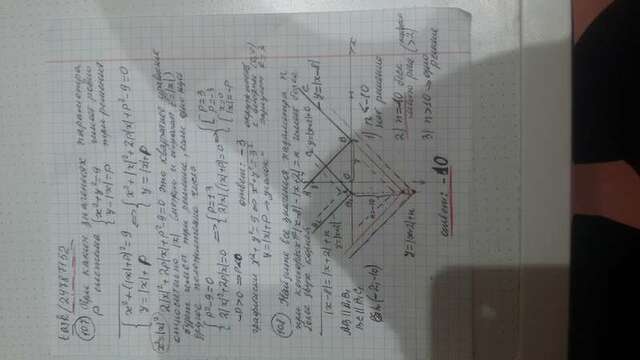 task/24787152
107 При каких значениях параметра
P система { x²+y²=9 имеет ровно
{ y-|x|=P три решения
{ x²+(|x|+P)²=9 ⇔ { x²+|x|²+2P|x|+P²-9=0
{ y=|x|+P { y=|x|+P
x²=|x|² 2|x|²+2P|x|+P²-9=0 это квадратное уравнение
относительно |x|
будет имеет три решения, если один нуль
другое положительно число
{ P²-9=0 ⇒ { P=±3 ⇒
{ 2|x|²+2P|x|=0 { 2|x|(|x|+P)=0
[ P=3
[ P=-3
[ x=0
|x|=-P
-P>0 ⇒ P<0 ответ: -3
графически x²+y²=9 ⇔ x²+y²=3² окружность
с центром (0,0)
y=|x|+P → "уголок" радиусом R=3
108 Найдите все значения параметра n
при которых |x-8|-|x+2|=n имеет более
более двух корней
|x-8|=|x+2|+n
y=|x-8|
AB || A₁B₁
BC || B₁C₁
(-2,-10)
y=|x+2|+n
1) n<-10
нет решения
2) n=-10 беск
много реш (>2)
3) n>10 → одно
решение
ответ: -10